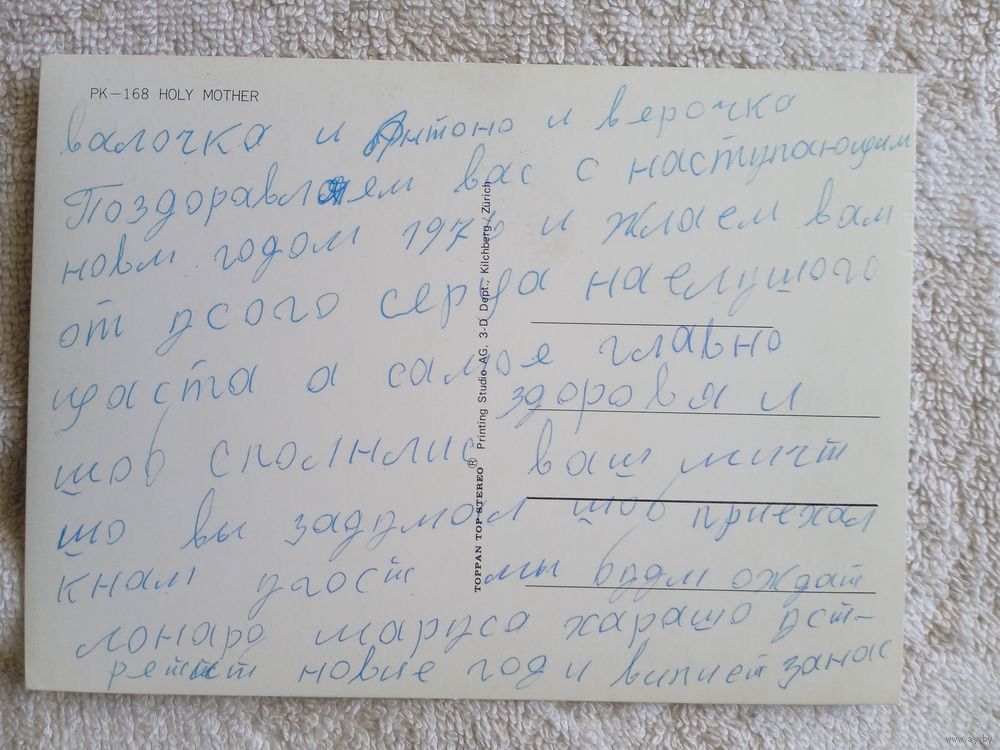 PK-168 HOLY MOTHER
валочка и Антоно и верочка
Поздоравляем вас с наступающим
новм годом 1976 и жлаем вам
от усого серца наелушого
щаста а самое главно
здоровя и
шоб сполнлис ваш мичт
шо вы задумал шоб приехал
кнам угост мы будм ождат
лонаро маруса харашо уст-
ретст новие год и випиет занас
TOPPAN TOP STEREO ® Printing Studio AG, 3-D Dept., Kilchberg/Zürich
www.ay.by